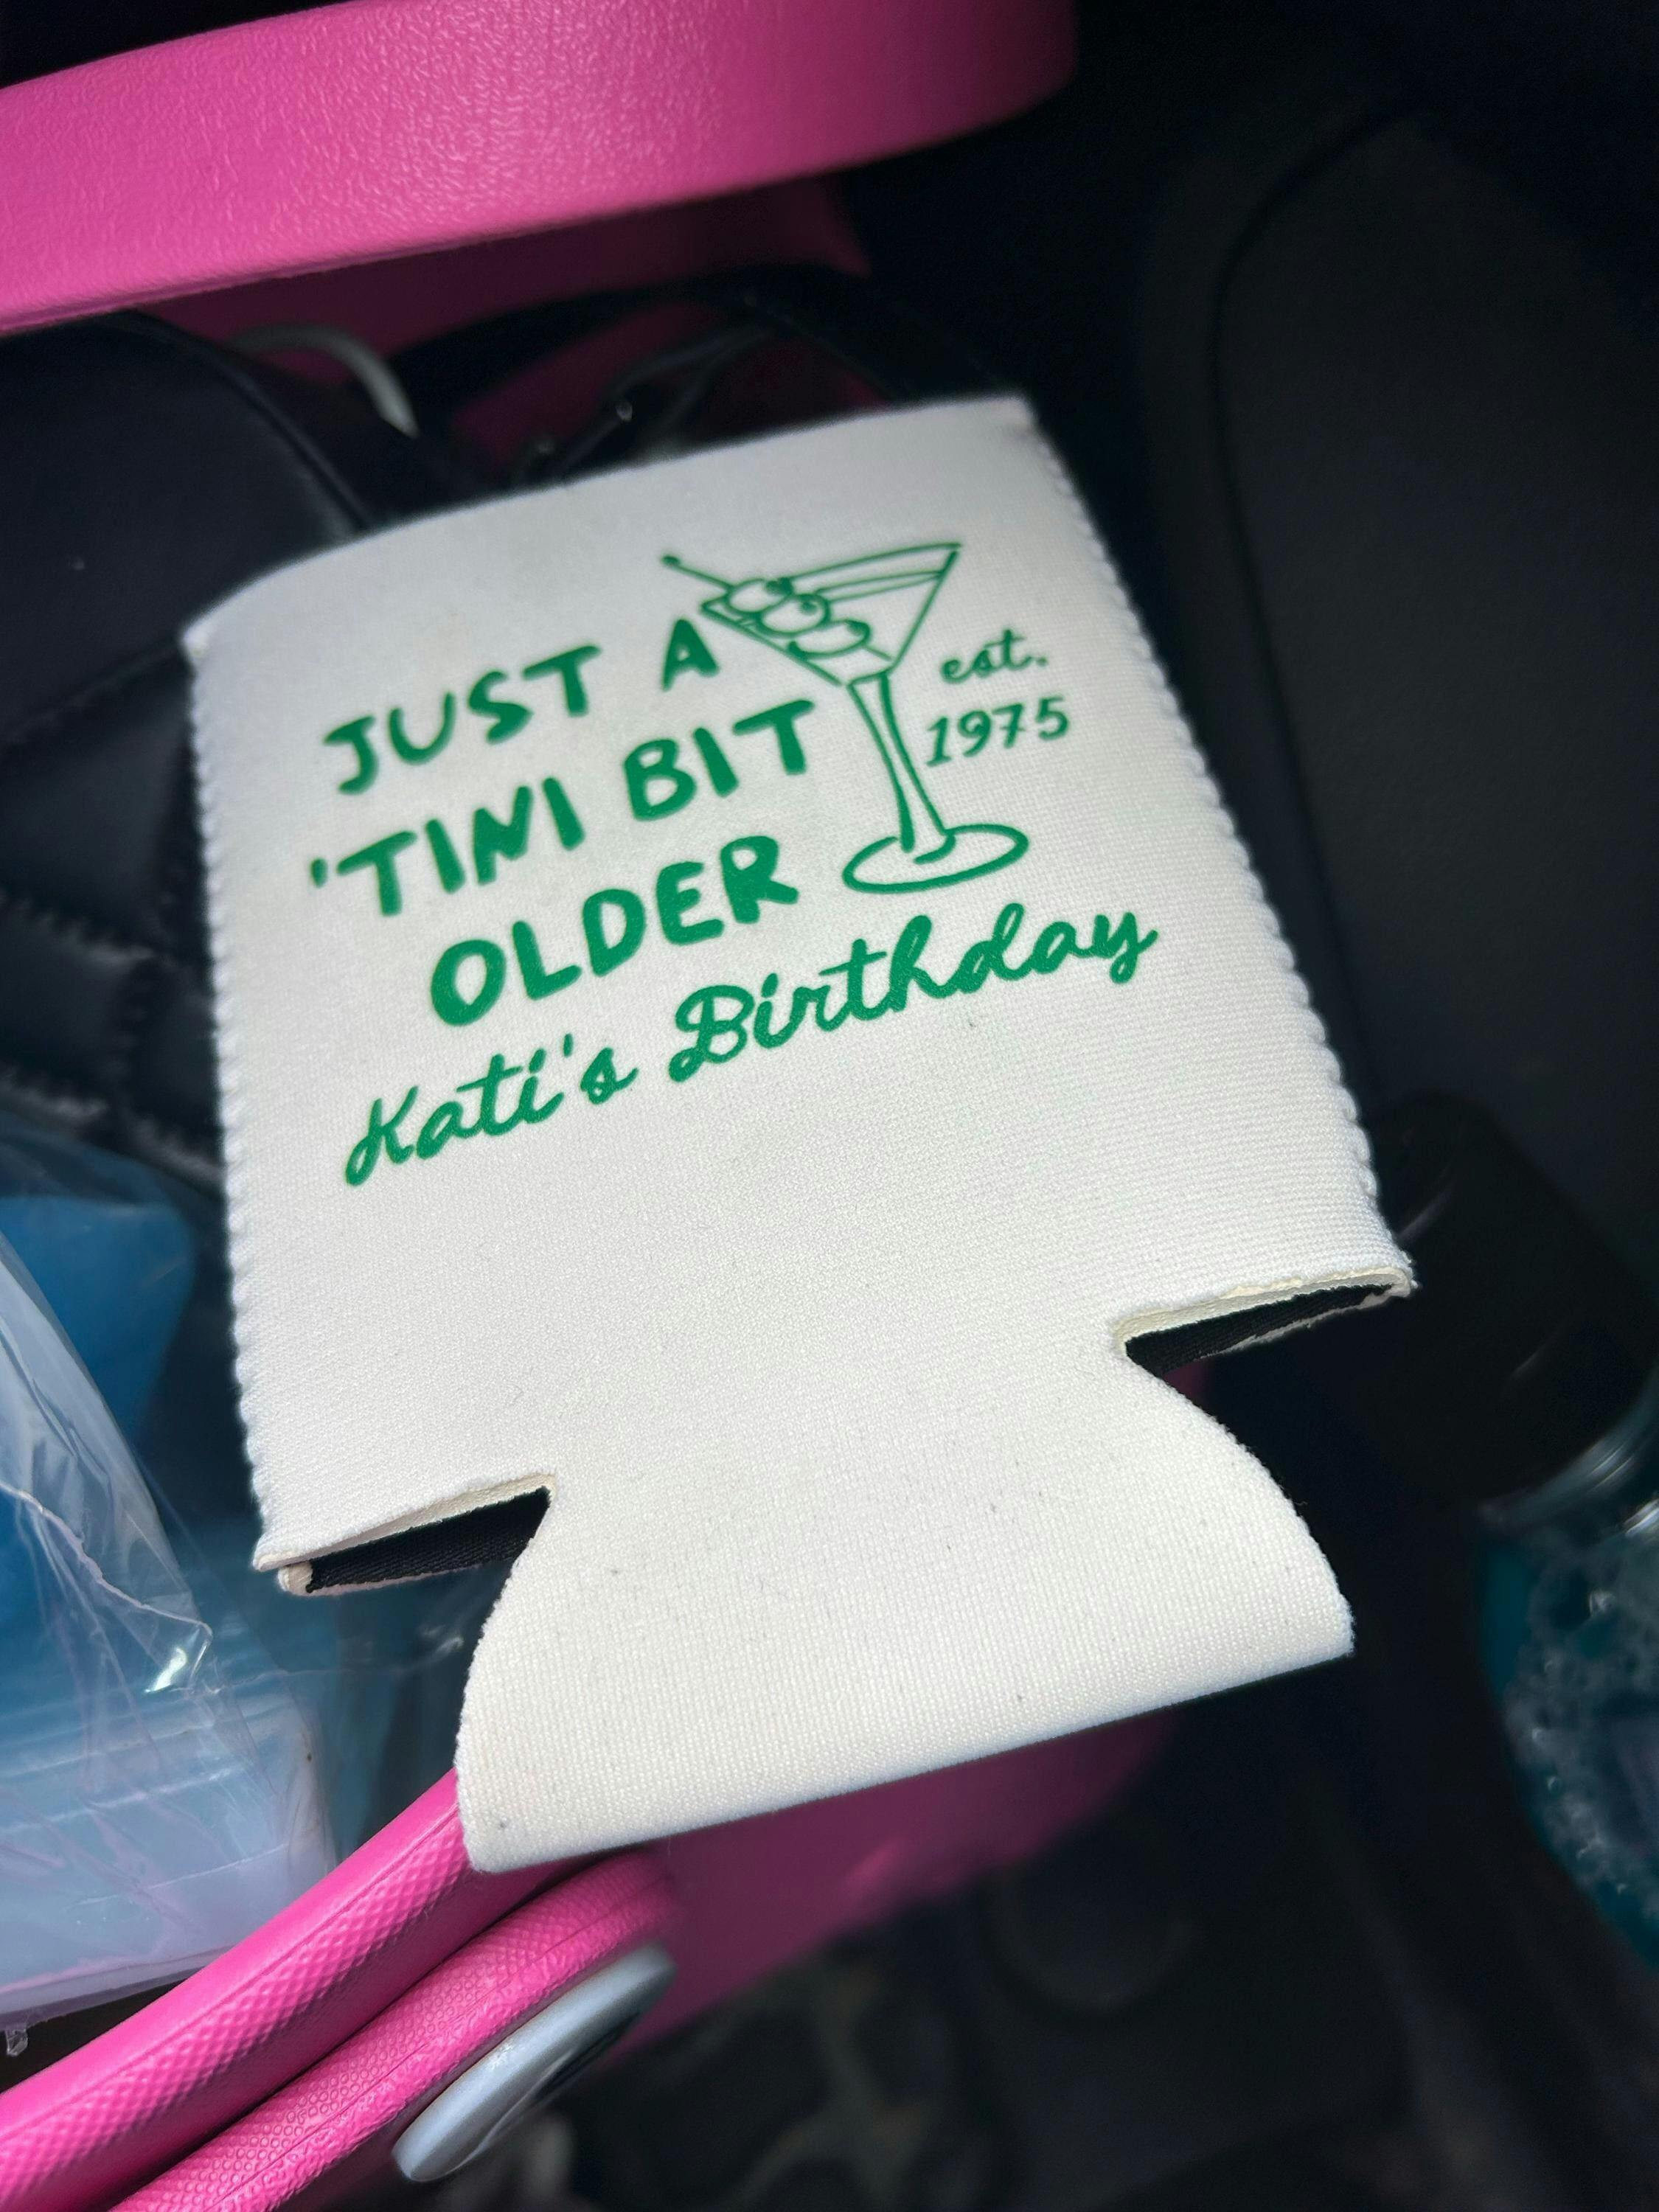 JUST A
'TINI BIT
OLDER
est.
1975
Kati's Birthday